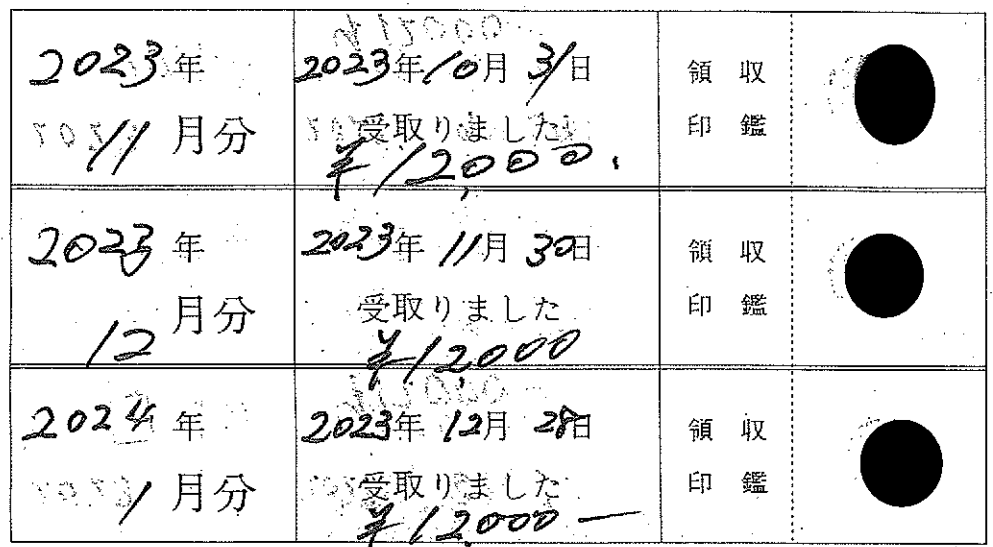 2023年
11月分
2023年10月31日
受取りました
¥12,000.
領収
印鑑
2023年
12月分
2023年11月30日
受取りました
¥12,000
領収
印鑑
2024年
1月分
2023年12月28日
受取りました
¥12,000-
領収
印鑑